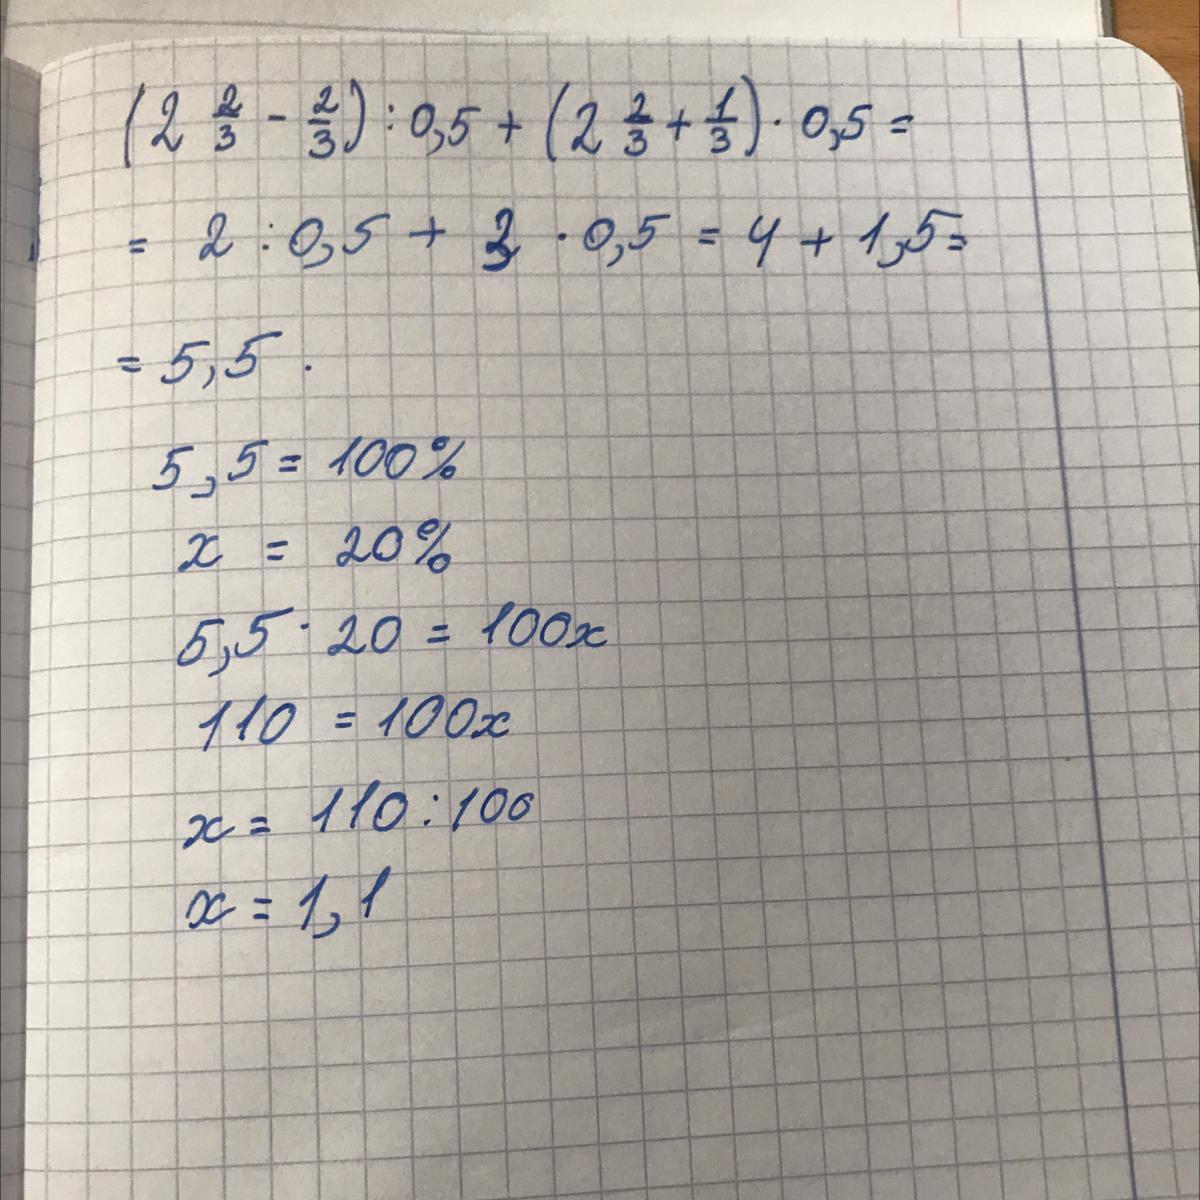 (2 2/3 - 2/3) : 0,5 + (2 2/3 + 1/3) · 0,5 =
= 2 : 0,5 + 3 · 0,5 = 4 + 1,5 =
= 5,5 .
5,5 = 100%
x = 20%
5,5 · 20 = 100x
110 = 100x
x = 110 : 100
x = 1,1